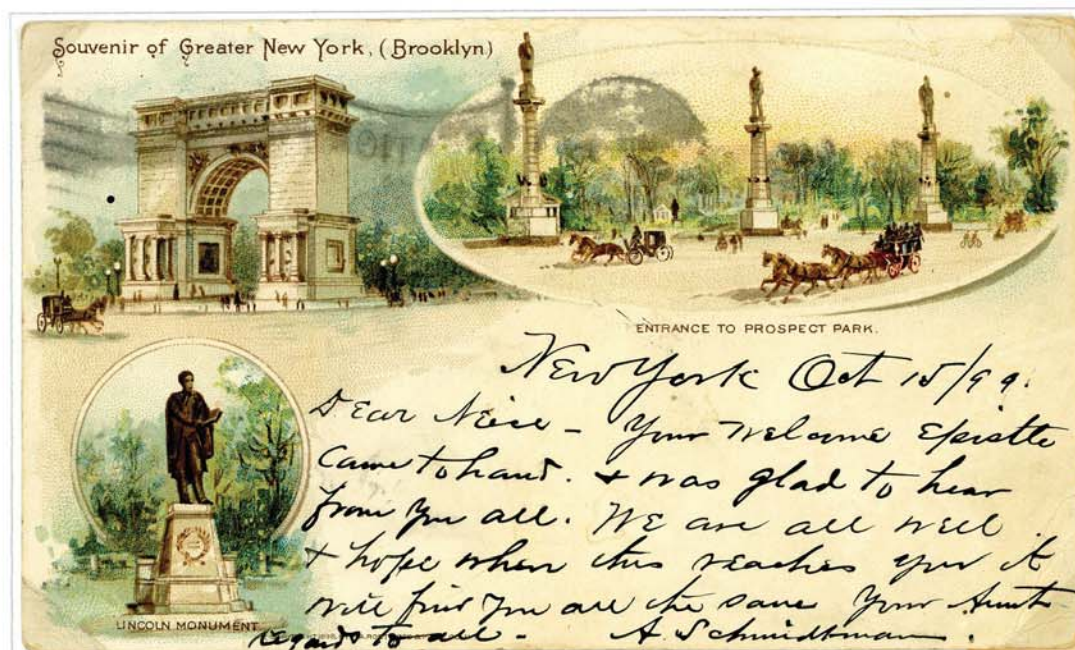 Souvenir of Greater New York, (Brooklyn)
ENTRANCE TO PROSPECT PARK.
LINCOLN MONUMENT
New York Oct 15/99.
Dear Neice - Your Welcome Epistle
Came to hand. & was glad to hear
from you all. WE are all well
& hope when this reaches you it
will find you all the same Your Aunt
regard to all - A. Schmidtman.